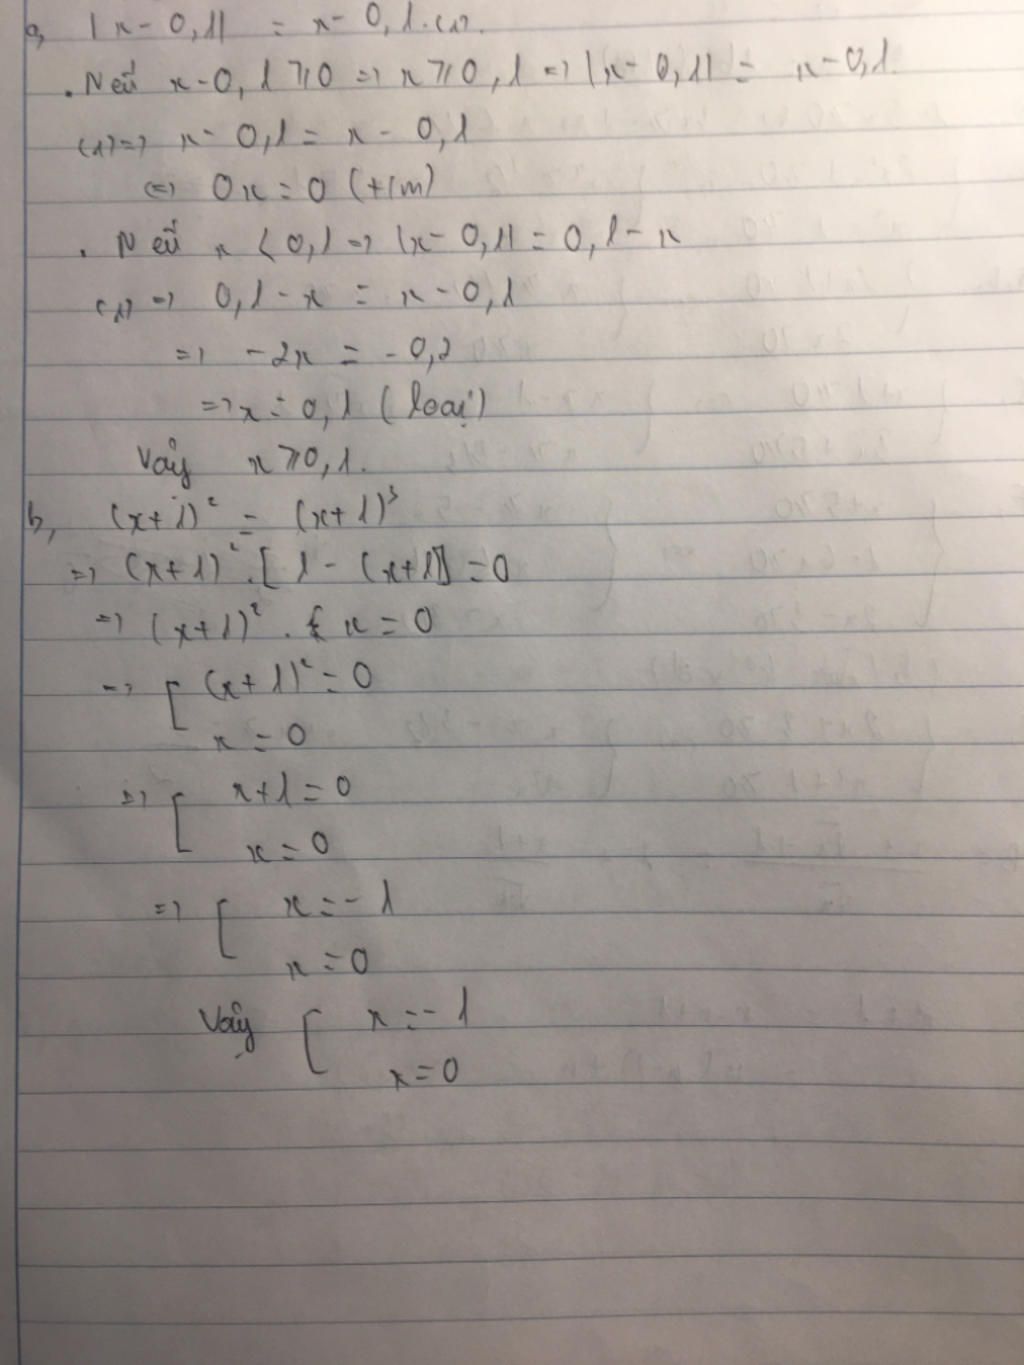 a, |x - 0,1| = x - 0,1. (1).
. Nếu x - 0,1 ⩾ 0 => x ⩾ 0,1 => |x - 0,1| = x - 0,1.
(1) => x - 0,1 = x - 0,1
<=> 0x = 0 (t/m)
. Nếu x < 0,1 => |x - 0,1| = 0,1 - x
(1) => 0,1 - x = x - 0,1
=> -2x = -0,2
=> x = 0,1 (loại)
Vậy x ⩾ 0,1.
b, (x+1)² = (x+1)³
=> (x+1)² . [1 - (x+1)] = 0
=> (x+1)² . x = 0
=> [ (x+1)² = 0
x = 0
=> [ x+1 = 0
x = 0
=> [ x = -1
x = 0
Vậy [ x = -1
x = 0